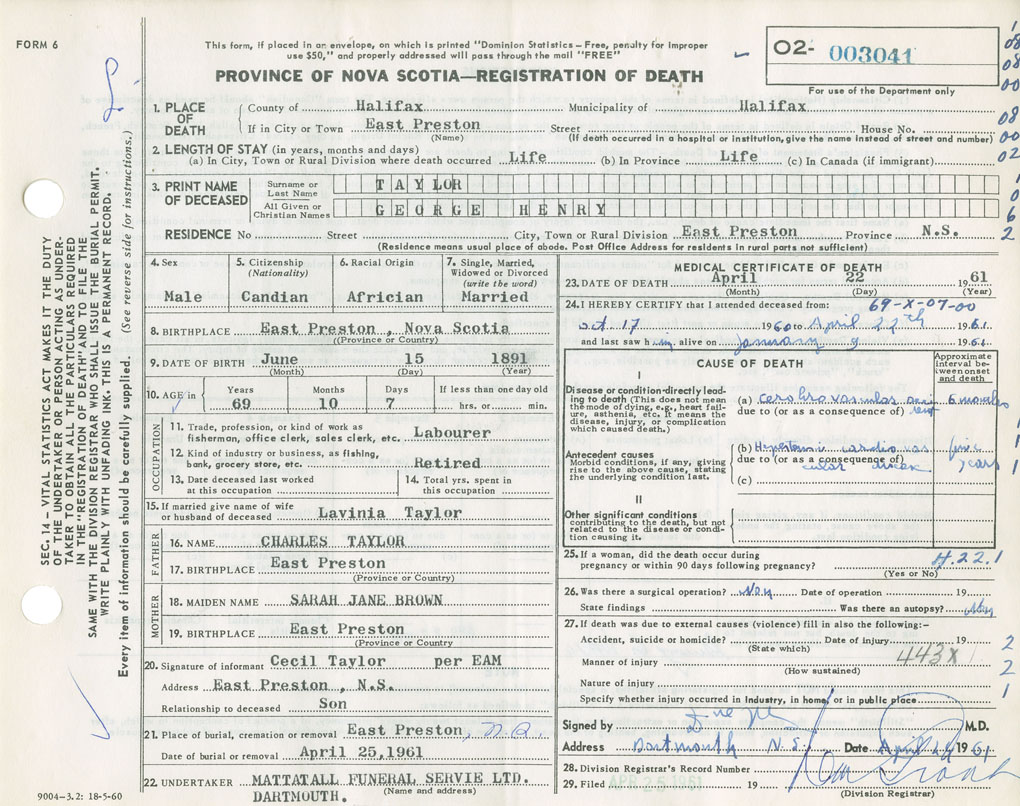 FORM 6
This form, if placed in an envelope, on which is printed "Dominion Statistics – Free, penalty for improper
use $50," and properly addressed will pass through the mail "FREE"
PROVINCE OF NOVA SCOTIA—REGISTRATION OF DEATH
02- 003041
For use of the Department only
1. PLACE OF DEATH
County of Halifax Municipality of Halifax
If in City or Town East Preston Street House No.
(Name) (If death occurred in a hospital or institution, give the name instead of street and number)
2. LENGTH OF STAY (in years, months and days)
(a) In City, Town or Rural Division where death occurred Life (b) In Province Life (c) In Canada (if immigrant)
3. PRINT NAME OF DECEASED
Surname or Last Name TAYLOR
All Given or Christian Names GEORGE HENRY
RESIDENCE No Street City, Town or Rural Division East Preston Province N.S.
(Residence means usual place of abode. Post Office Address for residents in rural parts not sufficient)
08
08
00
08
00
02
1
0
6
2
4. Sex
Male
5. Citizenship (Nationality)
Candian
6. Racial Origin
Africian
7. Single, Married, Widowed or Divorced (write the word)
Married
8. BIRTHPLACE East Preston, Nova Scotia
(Province or Country)
9. DATE OF BIRTH June 15 1891
(Month) (Day) (Year)
10. AGE in Years Months Days If less than one day old
69 10 7 hrs. or min.
OCCUPATION
11. Trade, profession, or kind of work as fisherman, office clerk, sales clerk, etc. Labourer
12. Kind of industry or business, as fishing, bank, grocery store, etc. Retired
13. Date deceased last worked at this occupation
14. Total yrs. spent in this occupation
15. If married give name of wife or husband of deceased Lavinia Taylor
FATHER
16. NAME CHARLES TAYLOR
17. BIRTHPLACE East Preston
(Province or Country)
MOTHER
18. MAIDEN NAME SARAH JANE BROWN
19. BIRTHPLACE East Preston
(Province or Country)
20. Signature of informant Cecil Taylor per EAM
Address East Preston, N.S.
Relationship to deceased Son
21. Place of burial, cremation or removal East Preston,
Date of burial or removal April 25,1961
22. UNDERTAKER MATTATALL FUNERAL SERVIE LTD.
DARTMOUTH. (Name and address)
MEDICAL CERTIFICATE OF DEATH
23. DATE OF DEATH April 22 1961
(Month) (Day) (Year)
24. I HEREBY CERTIFY that I attended deceased from: 69-X-07-00
Oct. 17 1960 to April 22th 1961
and last saw him alive on January 9 1961
CAUSE OF DEATH
Approximate interval between onset and death
I
Disease or condition directly leading to death (This does not mean the mode of dying, e.g., heart failure, asthenia, etc. It means the disease, injury, or complication which caused death.)
(a) 6 months
due to (or as a consequence of)
Antecedent causes
Morbid conditions, if any, giving rise to the above cause, stating the underlying condition last.
(b) Hypertensive cardiovas five
due to (or as a consequence of) years
cular disease
(c)
II
Other significant conditions
contributing to the death, but not related to the disease or condition causing it.
25. If a woman, did the death occur during pregnancy or within 90 days following pregnancy? H.22.1
(Yes or No)
26. Was there a surgical operation? Date of operation 19
State findings Was there an autopsy?
27. If death was due to external causes (violence) fill in also the following:-
Accident, suicide or homicide? Date of injury 19
(State which)
443X
Manner of injury
(How sustained)
Nature of injury
Specify whether injury occurred in Industry, in home, or in public place
1
1
1
2
2
1
Signed by M.D.
Address Dartmouth N.S. Date April 1961
28. Division Registrar's Record Number
29. Filed APR 25 1961 19
(Division Registrar)
SEC. 14 – VITAL STATISTICS ACT MAKES IT THE DUTY
OF THE UNDERTAKER OR PERSON ACTING AS UNDER-
TAKER TO OBTAIN ALL THE PARTICULARS REQUIRED
IN THE "REGISTRATION OF DEATH" AND TO FILE THE
SAME WITH THE DIVISION REGISTRAR WHO SHALL ISSUE THE BURIAL PERMIT.
WRITE PLAINLY WITH UNFADING INK. THIS IS A PERMANENT RECORD.
Every item of information should be carefully supplied. (See reverse side for instructions.)
9004-3.2: 18-5-60